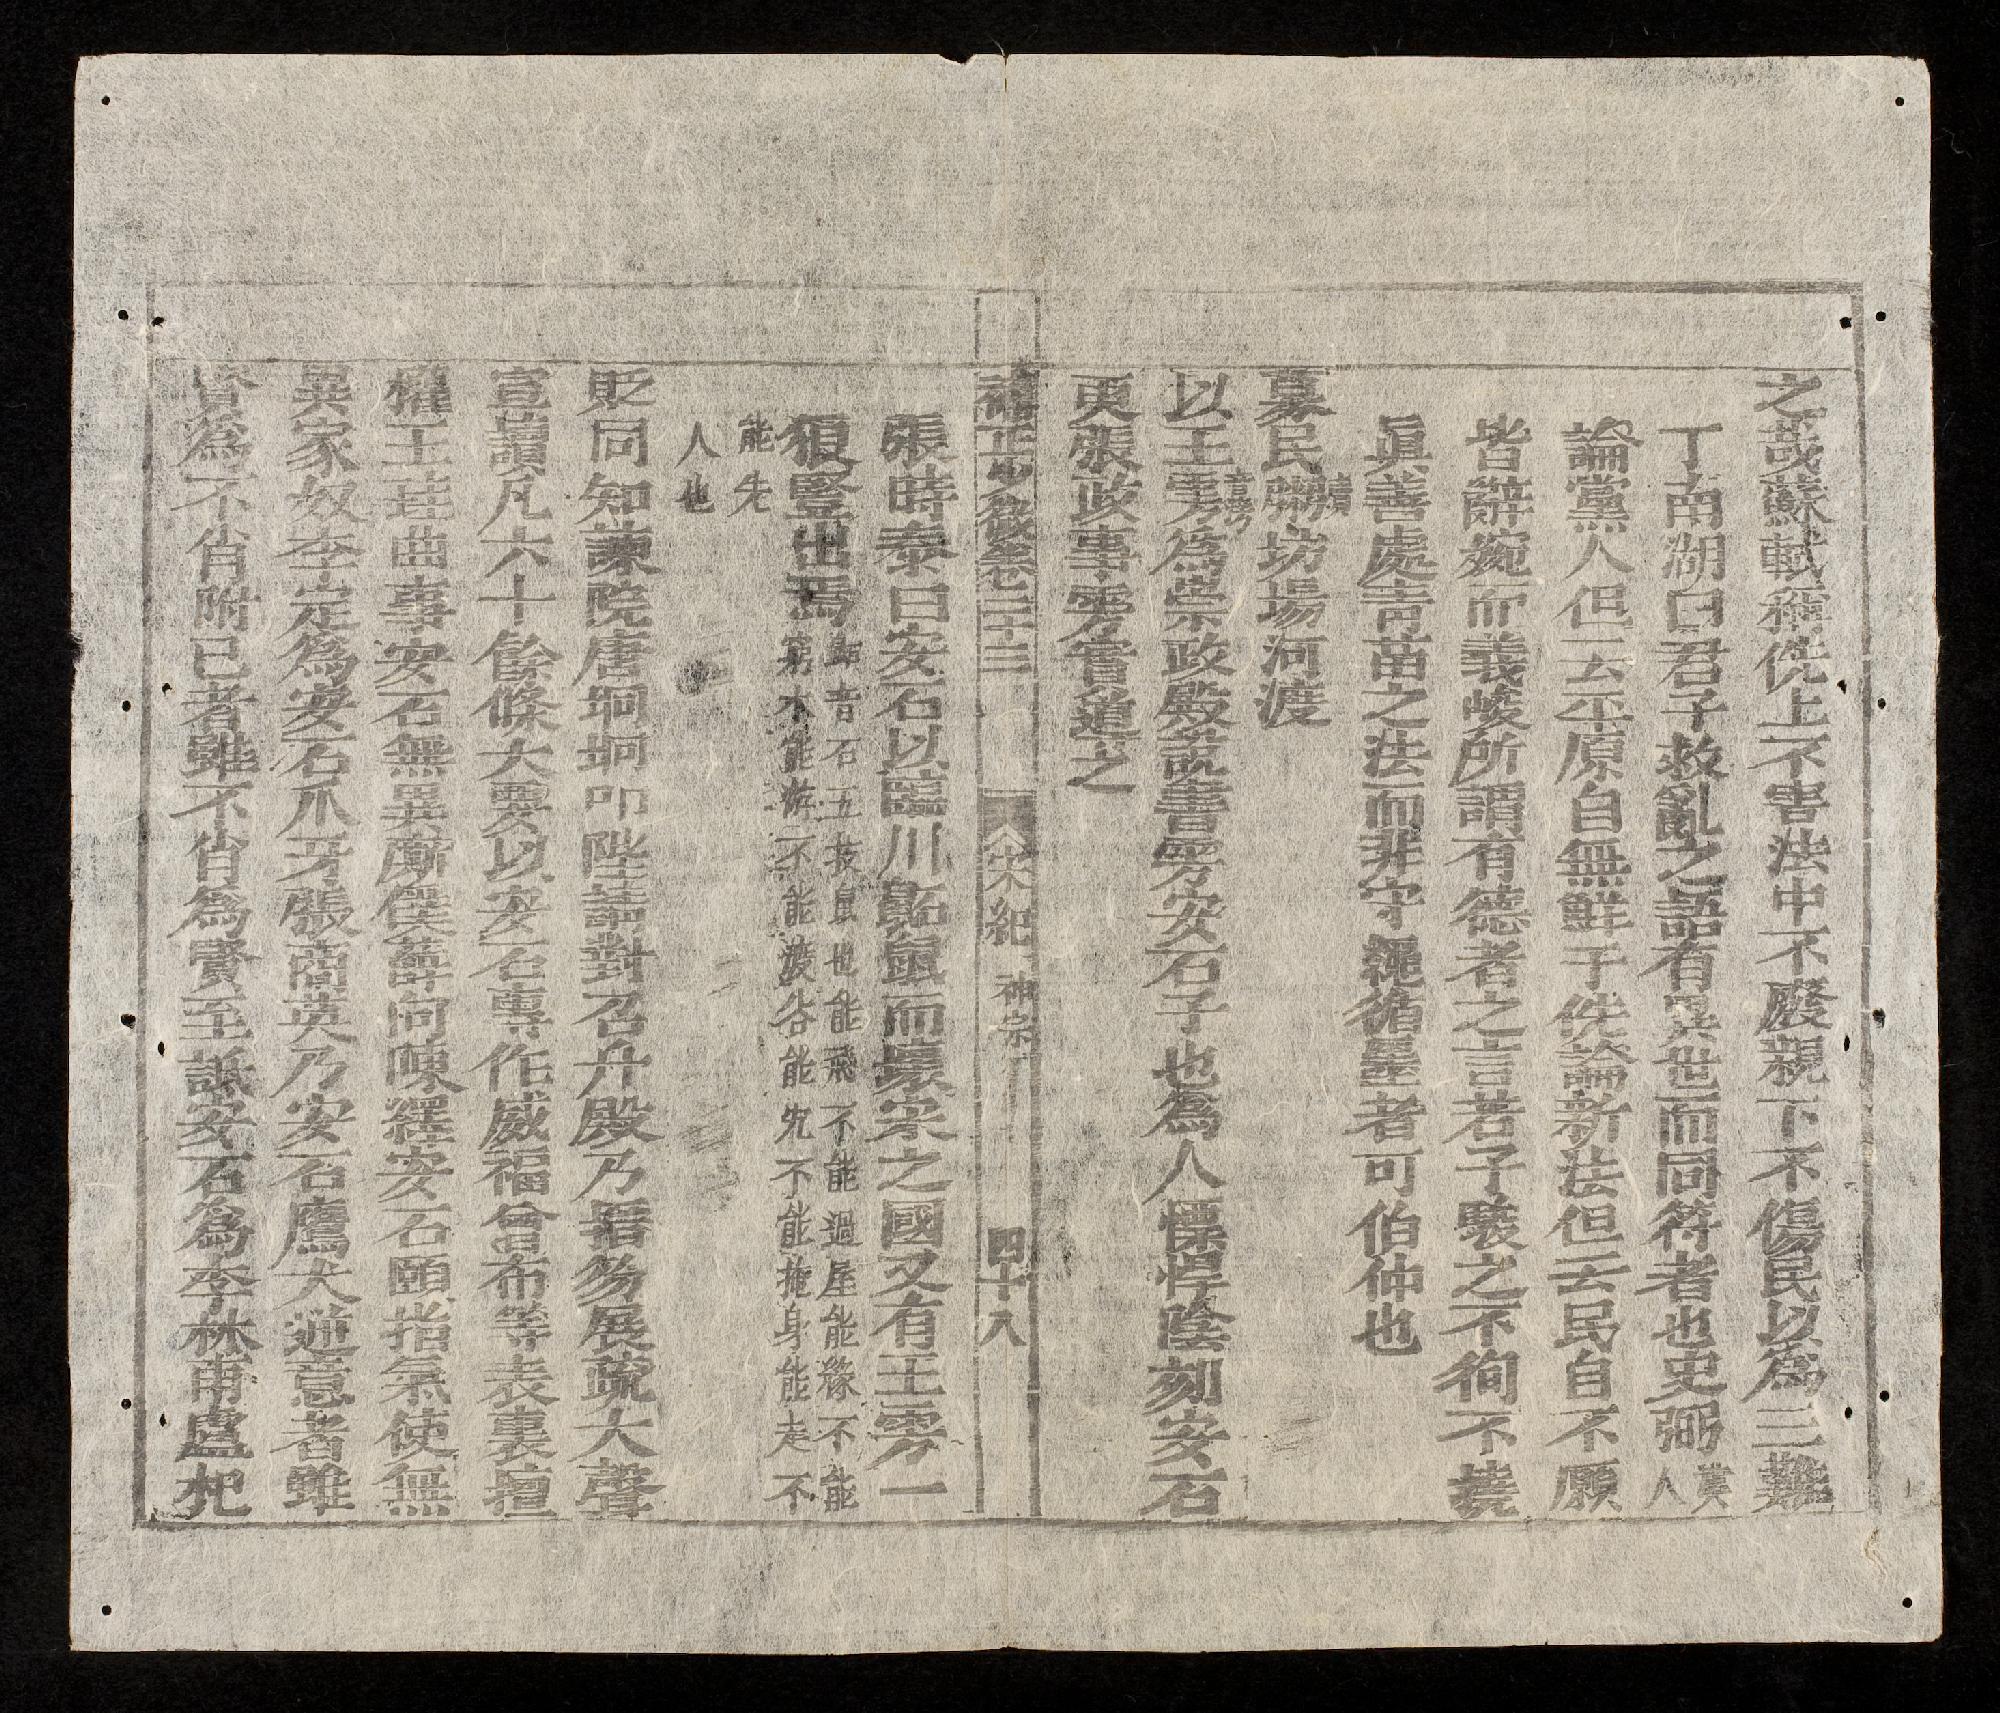 之哉蘇軾稱侁上不害法中不廢親下不傷民以爲三難
丁南湖曰君子救亂之語有異世而同符者也史弼黨人
論黨人但云平原自無鮮于侁論新法但云民自不願
皆辭婉而義峻所謂有德者之言若子襞之不徇不撓
眞善處青苗之法而非守繩循墨者可伯仲也
募民
坊場河渡
以王雱
爲崇政殿說書雱安石子也爲人慓悍陰刻安石
更張政事雱實導之
卷二十三
宋紀
神宗
四十八
張時泰曰安石以臨川鼫鼠而壞宋之國又有王雱一
狠豎出焉
鼫音石五技鼠也能飛不能過屋能緣不能
窮木能游不能渡谷能穴不能掩身能走不
能先
人也
貶同知諫院唐坰坰叩陛請對召升殿乃搢笏展疏大聲
宣讀凡六十餘條大要以安石專作威福曾布等表裏擅
權王珪曲事安石無異廝僕薛向陳繹安石頤指氣使無
異家奴李定爲安石爪牙張商英乃安石鷹犬逆意者雖
賢爲不肖附己者雖不肖爲賢至詆安石爲李林甫盧杞